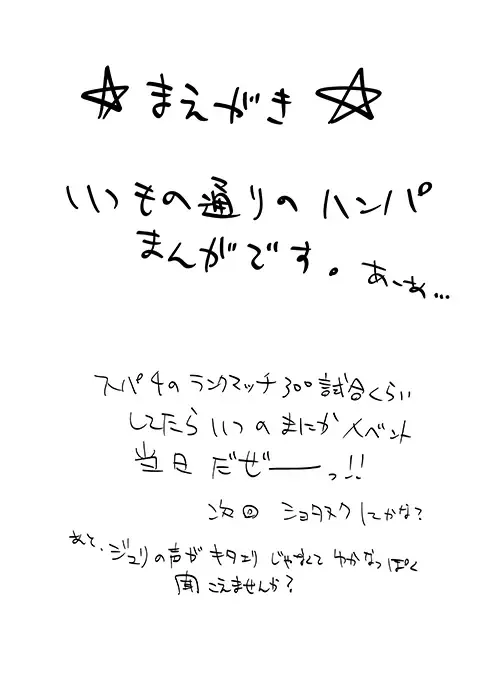 ☆ まえがき ☆
いつもの通りのハンパ
まんがです。あーあ…
スパ4のランクマッチ300試合くらい
してたらいつのまにかイベント
当日だぜーーっ!!
次回 ショタヌクにかな?
あと、ジュリの声がキタエリじゃなくてゆかなっぽく
聞こえませんか?